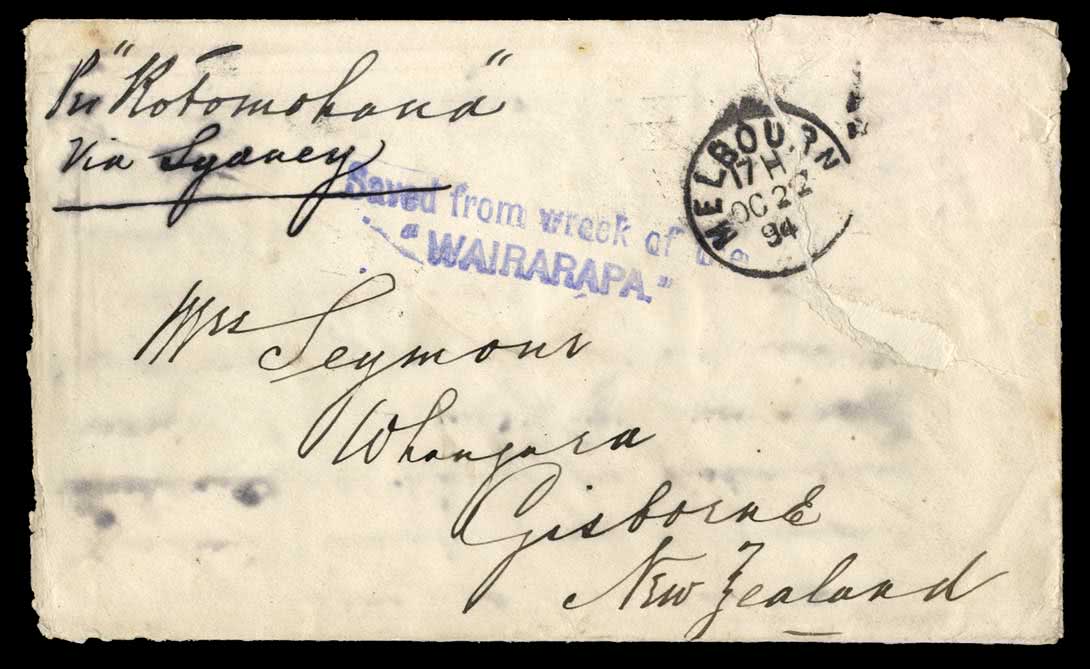 Per "Rotomohana"
Via Sydney
Saved from wreck of the
"WAIRARAPA."
MELBOURN
17 H
OC 22
94
Mrs Seymour
Whangara
Gisborne
New Zealand